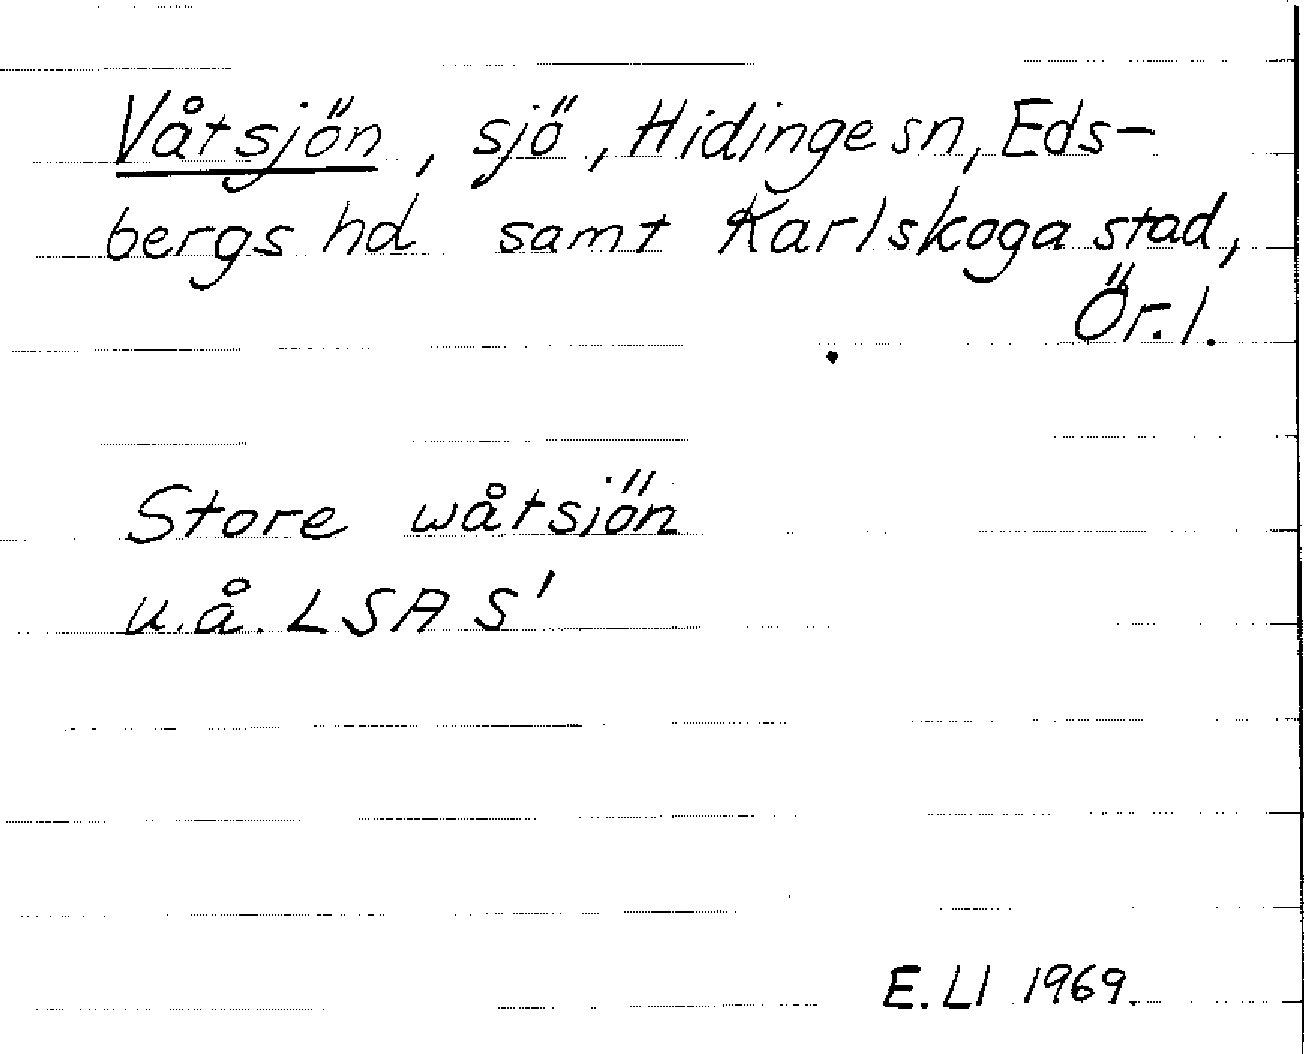 Våtsjön, sjö, Hidinge sn, Eds-
bergs hd samt Karlskoga stad,
Ör. l.
Store wåtsjön
u.å. LSA S'
E. Ll 1969.